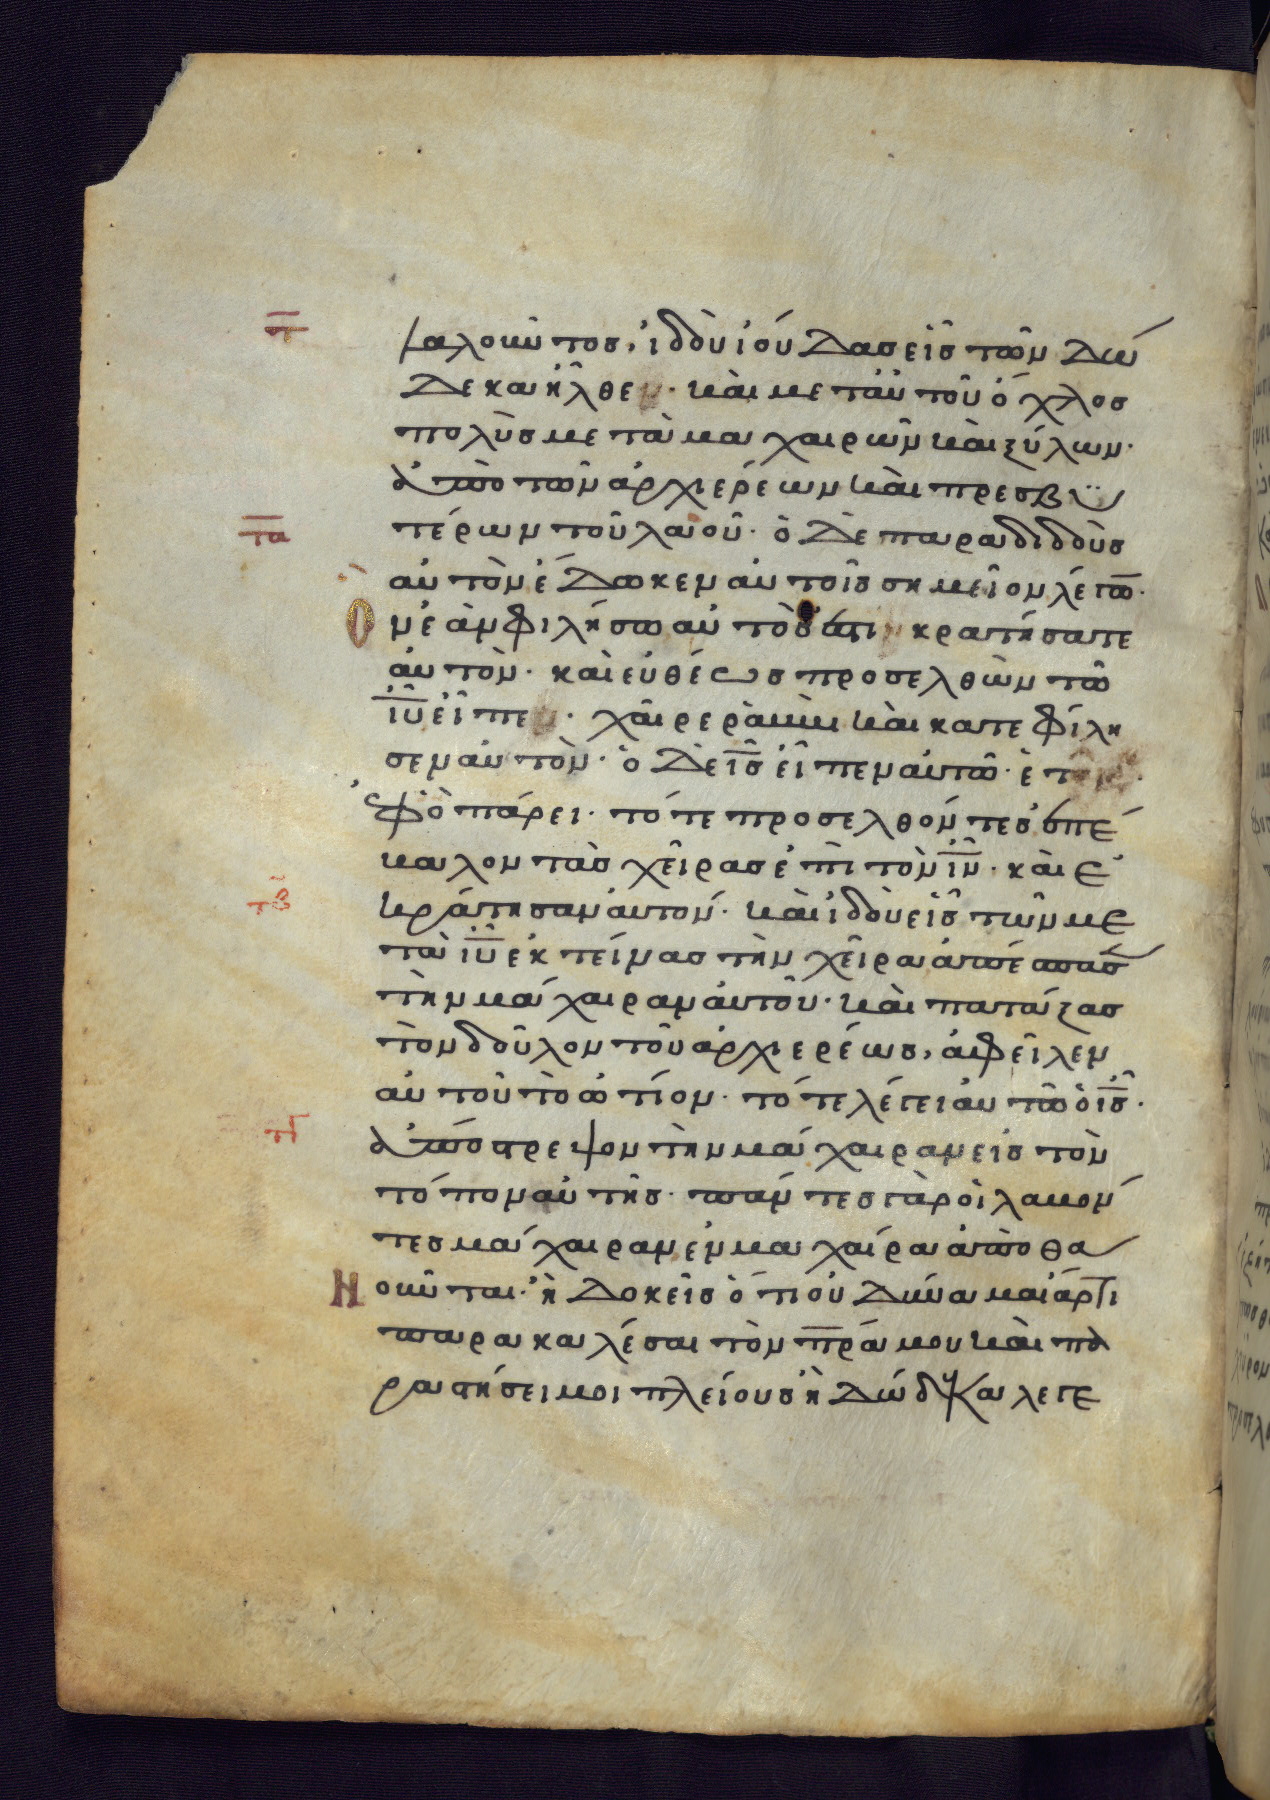 π
λαλοῦντος, ἰδοὺ ἰούδας εἷς τῶν δώ
δεκα ἦλθεν. καὶ μετ αὐτοῦ ὄχλος
πολὺς μετὰ μαχαιρῶν καὶ ξύλων.
ἀπὸ τῶν ἀρχιερέων καὶ πρεσβυ
πα
τέρων τοῦ λαοῦ. ὁ δὲ παραδιδοὺς
αὐτὸν ἔδωκεν αὐτοῖς σημεῖον λέγω.
Ὸν ἐὰν φιλήσω αὐτός ἐστιν κρατήσατε
αὐτὸν. καὶ εὐθέως προσελθὼν τῶ
ἰῦ εἶπεν. χαῖρε ῥαββὶ καὶ κατεφίλη
σεν αὐτὸν. ὁ δὲ ἰς εἶπεν αὐτῶ. ἑταῖρε.
ἐφ ὃ πάρει. τότε προσελθόντες ἐπέ
βαλον τὰς χεῖρας ἐπὶ τὸν ἰν. καὶ ἐ
πβ
κράτησαν αὐτον. καὶ ἰδοὺ εἷς τῶν με
τὰ ἰυ ἐκτείνας τὴν χεῖρα ἀπέσπασε
τὴν μάχαιραν αὐτοῦ. καὶ πατάξας
τὸν δοῦλον τοῦ ἀρχιερέως, ἀφεῖλεν
αὐτοῦ τὸ ὠτίον. τότε λέγει αὐτῶ ὁ ις.
πγ
ἀπόστρεψον τὴν μάχαιραν εἰς τὸν
τόπον αὐτῆς. πάντες γὰρ οἱ λαβόν
τες μάχαιραν ἐν μαχαίρα ἀποθα
Η νοῦνται. ἢ δοκεῖς ὅτι οὐ δύναμαι ἄρτι
παρακαλέσαι τὸν πρα μου καὶ πα
ραστήσει μοι πλείους ἢ δώδεκα λεγε